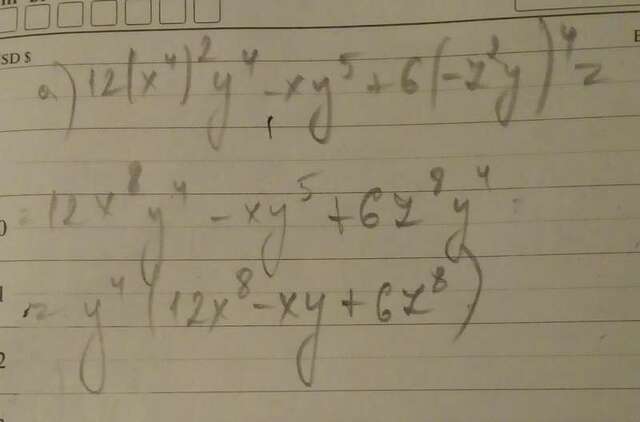 SD $
a) 12(x⁴)²y⁴ - xy⁵ + 6(-z²y)⁴ =
= 12x⁸y⁴ - xy⁵ + 6z⁸y⁴ =
= y⁴(12x⁸ - xy + 6z⁸)